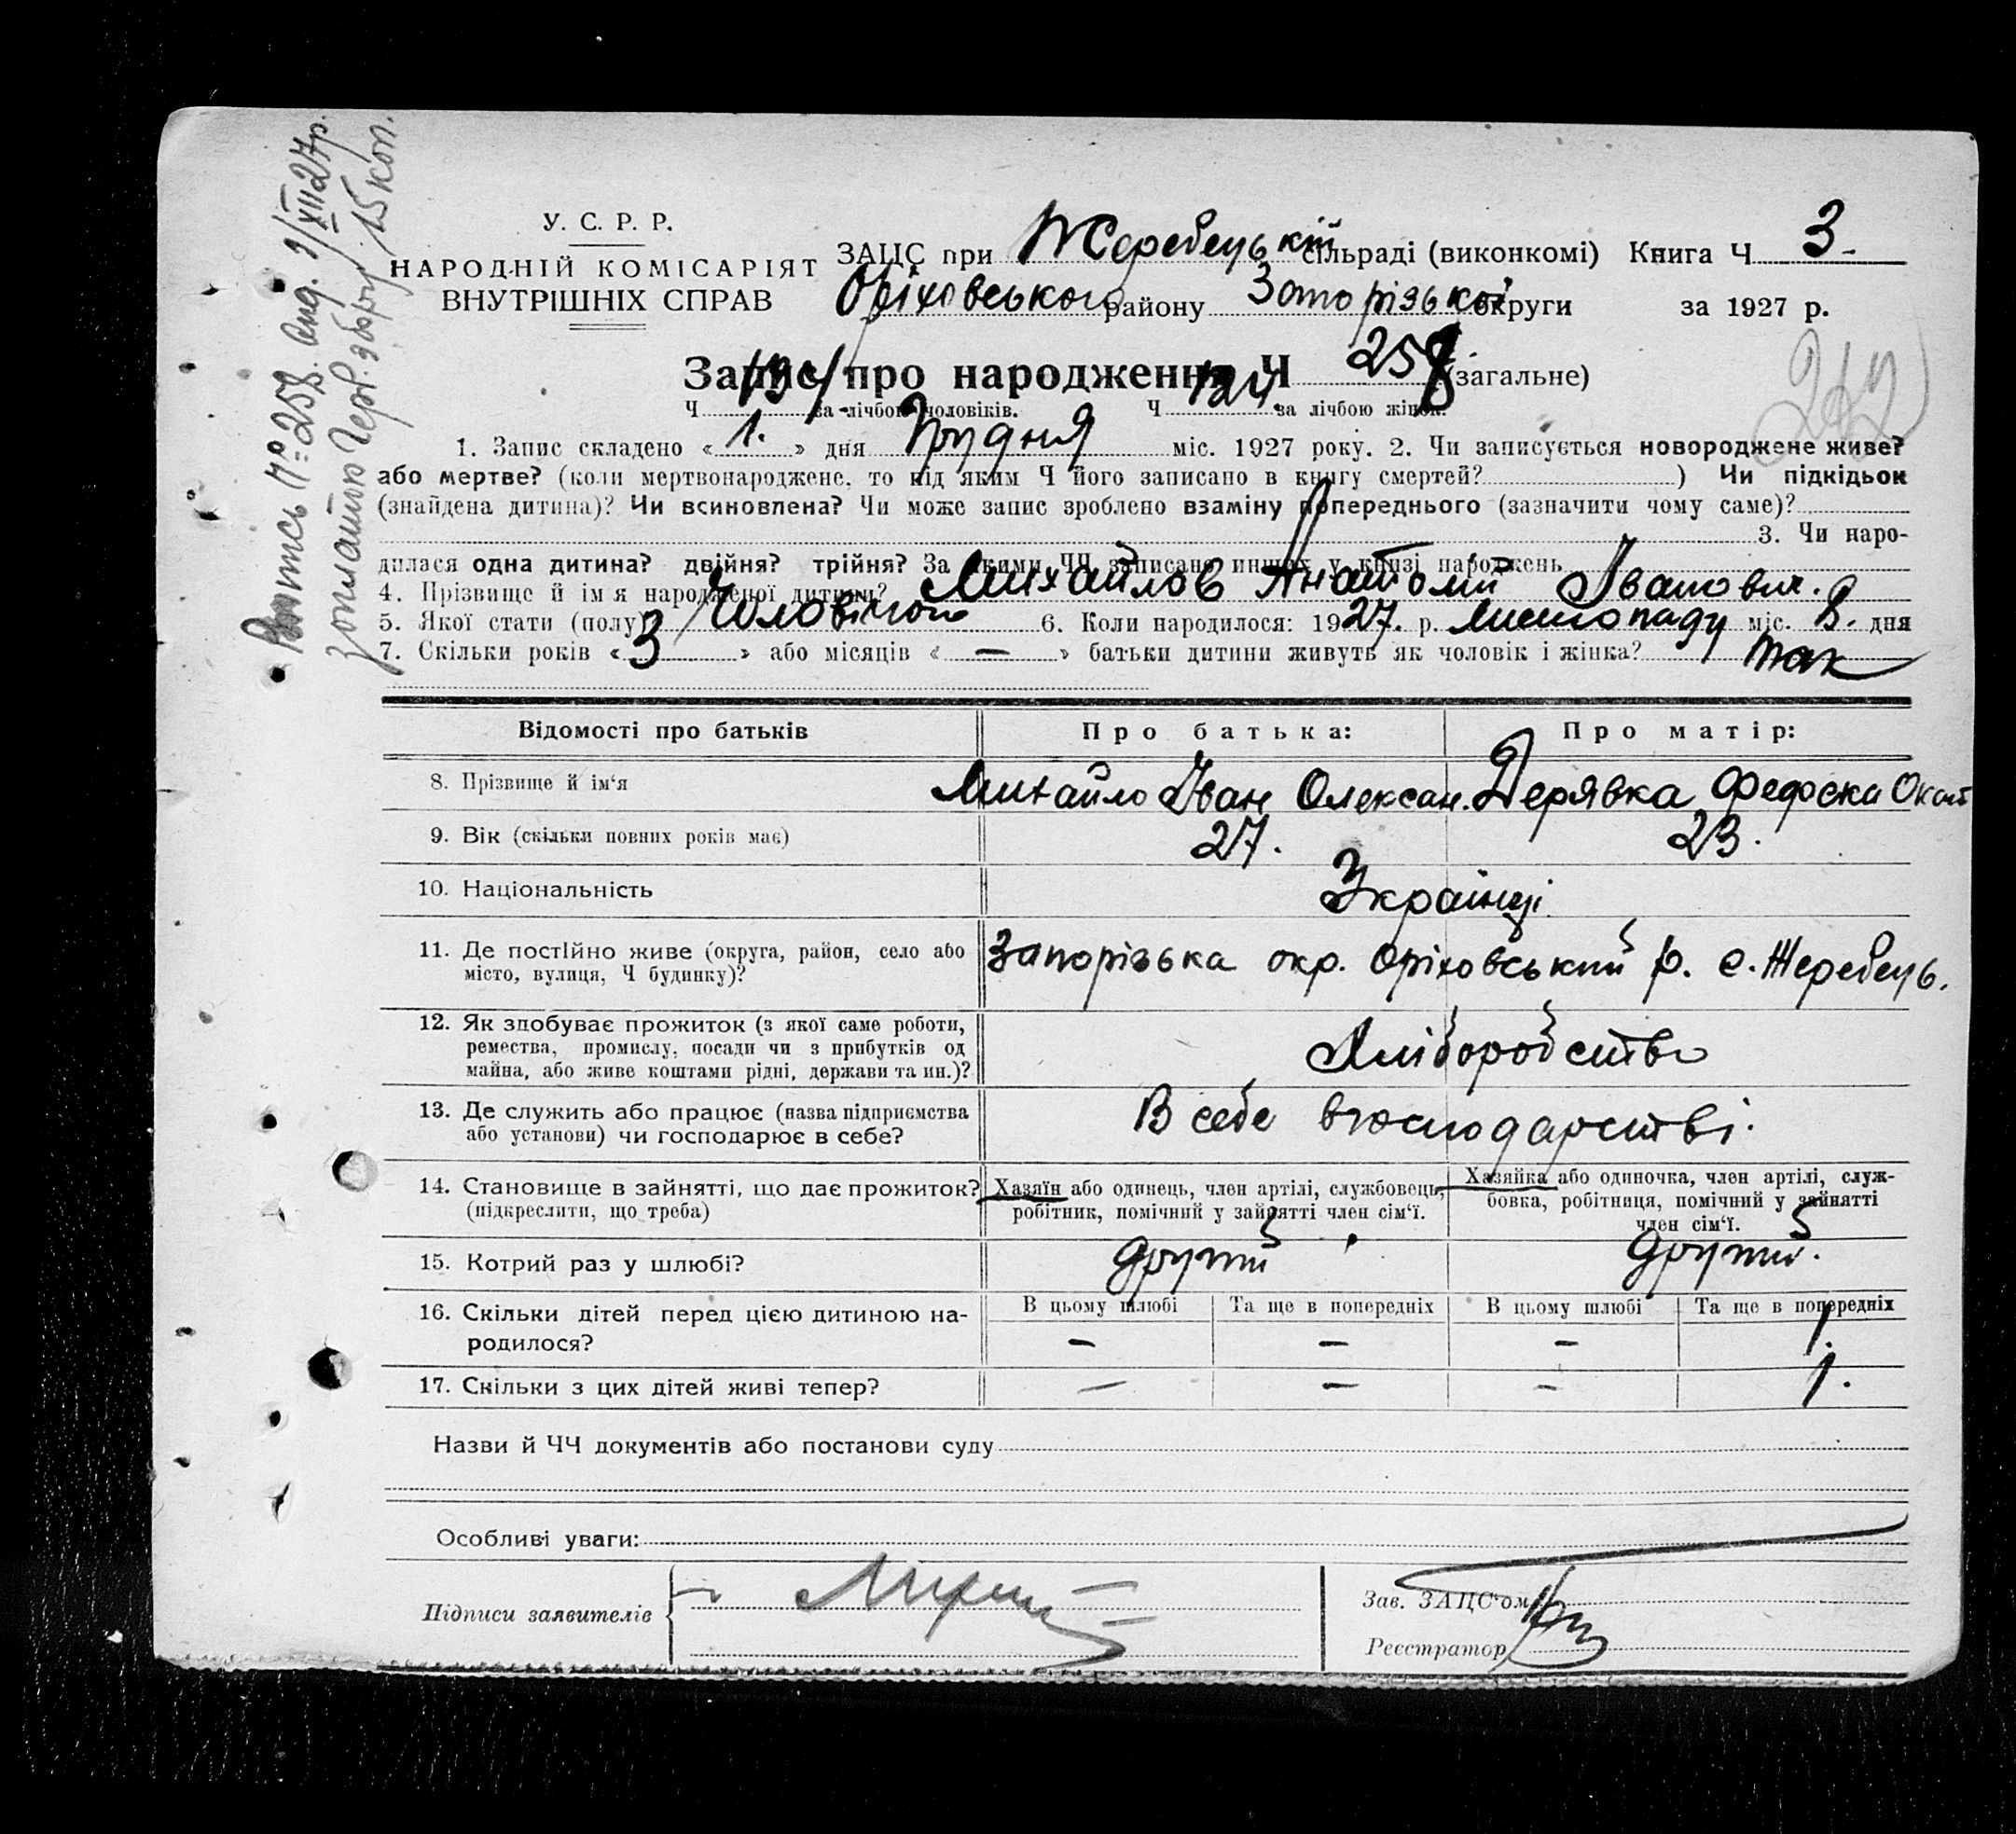 Витсь № 258. вид. 3/XII 27 р.
зоплатою Герб. збору 15 коп.
У. С. Р. Р.
НАРОДНІЙ КОМІСАРІЯТ
ВНУТРІШНІХ СПРАВ
ЗАЦС при Жеребецькій сільраді (виконкомі) Книга Ч 3.
Оріховського району Запорізької округи за 1927 р.
Запис про народження Ч 258 (загальне)
Ч 134 за лічбою чоловіків. Ч 124 за лічбою жінок.
1. Запис складено « 1. » дня Грудня міс. 1927 року. 2. Чи записується новороджене живе?
або мертве? (коли мертвонароджене, то під яким Ч його записано в книгу смертей? ) Чи підкідьок
(знайдена дитина)? Чи всиновлена? Чи може запис зроблено взаміну попереднього (зазначити чому саме)?
3. Чи наро-
дилася одна дитина? двійня? трійня? За якими ЧЧ записано инших у книзі народжень
4. Прізвище й ім'я народженої дитини? Михайлов Анатолій Іванович.
5. Якої стати (полу) Чоловічої 6. Коли народилося: 1927. р. Листопаду міс. 8. дня
7. Скільки років « 3 » або місяців « — » батьки дитини живуть як чоловік і жінка? так
Відомості про батьків Про батька: Про матір:
8. Прізвище й ім'я Михайло Іван Олексан. Дерявка Федоска
9. Вік (скільки повних років має) 27. 23.
10. Національність Українці
11. Де постійно живе (округа, район, село або
місто, вулиця, Ч будинку)? Запорізька окр. Оріховський р. с. Жеребець.
12. Як здобуває прожиток (з якої саме роботи,
ремества, промислу, посади чи з прибутків од
майна, або живе коштами рідні, держави та ин.)? Хліборобство
13. Де служить або працює (назва підприємства
або установи) чи господарює в себе? В себе в господарстві.
14. Становище в зайнятті, що дає прожиток?
(підкреслити, що треба)
Хазяїн або одинець, член артілі, службовець,
робітник, помічний у зайнятті член сім'ї.
Хазяйка або одиночка, член артілі, служ-
бовка, робітниця, помічний у зайнятті
член сім'ї.
15. Котрий раз у шлюбі? другий другий.
16. Скільки дітей перед цією дитиною на-
родилося?
В цьому шлюбі Та ще в попередніх В цьому шлюбі Та ще в попередніх
— — — 1.
17. Скільки з цих дітей живі тепер? — — — 1.
Назви й ЧЧ документів або постанови суду
Особливі уваги:
Підписи заявителів
Зав. ЗАЦС'ом
Реєстратор